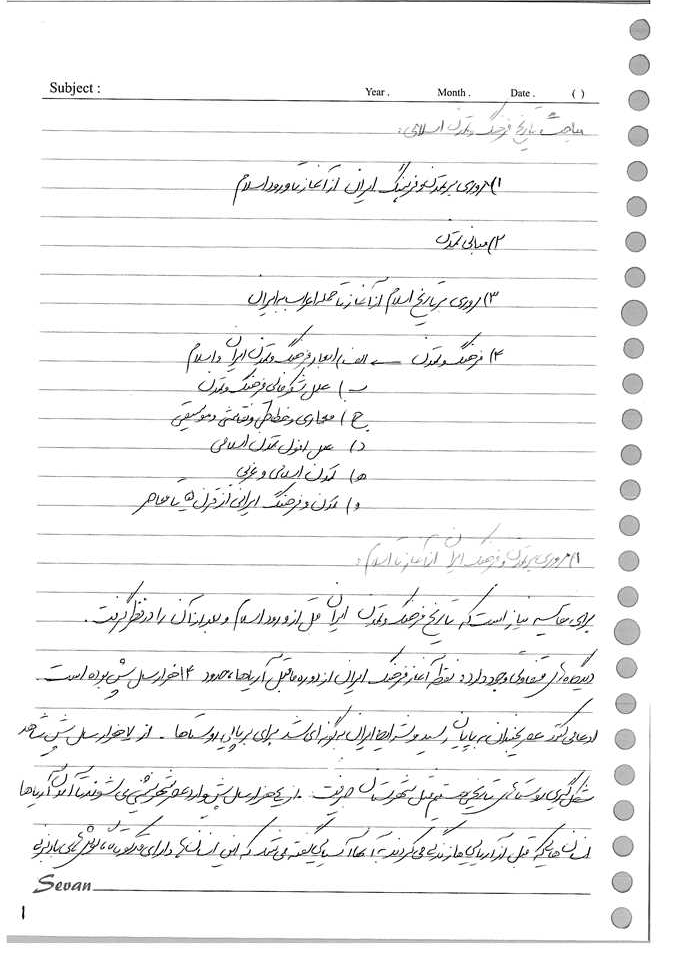 Subject :
Year . Month . Date . ( )
مباحث تاریخ فرهنگ و تمدن اسلامی:
۱) مروری بر تمدن و فرهنگ ایران از آغاز تا ورود اسلام
۲) مبانی تمدن
۳) مروری بر تاریخ اسلام از آغاز تا حمله اعراب به ایران
۴) فرهنگ و تمدن ← الف) ابعاد فرهنگ و تمدن ایران و اسلام
ب) علل شکوفایی فرهنگ و تمدن
ج) معماری و خطاطی و نقاشی و موسیقی
د) علل افول تمدن اسلامی
ه) تمدن اسلامی و غربی
و) تمدن و فرهنگ ایرانی از قرن ۵ تا معاصر
۱) مروری بر تمدن و فرهنگ ایران از آغاز تا اسلام:
برای مقایسه نیاز است که تاریخ فرهنگ و تمدن ایران قبل از ورود اسلام و بعد از آن را در نظر گرفت.
دیدگاه های متفاوتی وجود دارد نقطه آغاز فرهنگ ایران از دوره ماقبل آریاها، حدود ۱۴ هزار سال پیش بوده است
ادعا می شود عصر یخبندان به پایان رسید و شرایط ایران به گونه ای شد برای برپایی روستاها. از ۷ هزار سال پیش شاهد
شکل گیری روستاهای تاریخی هستیم مثل شهرستان جیرفت. از هزار سال پیش وارد عصر شهرنشینی می شوند تا آمدن آریاها
انسان هایی که قبل از آریایی ها زندگی می کردند به آنها آسیانی گفته می شد که این انسان ها دارای
Sevan
1